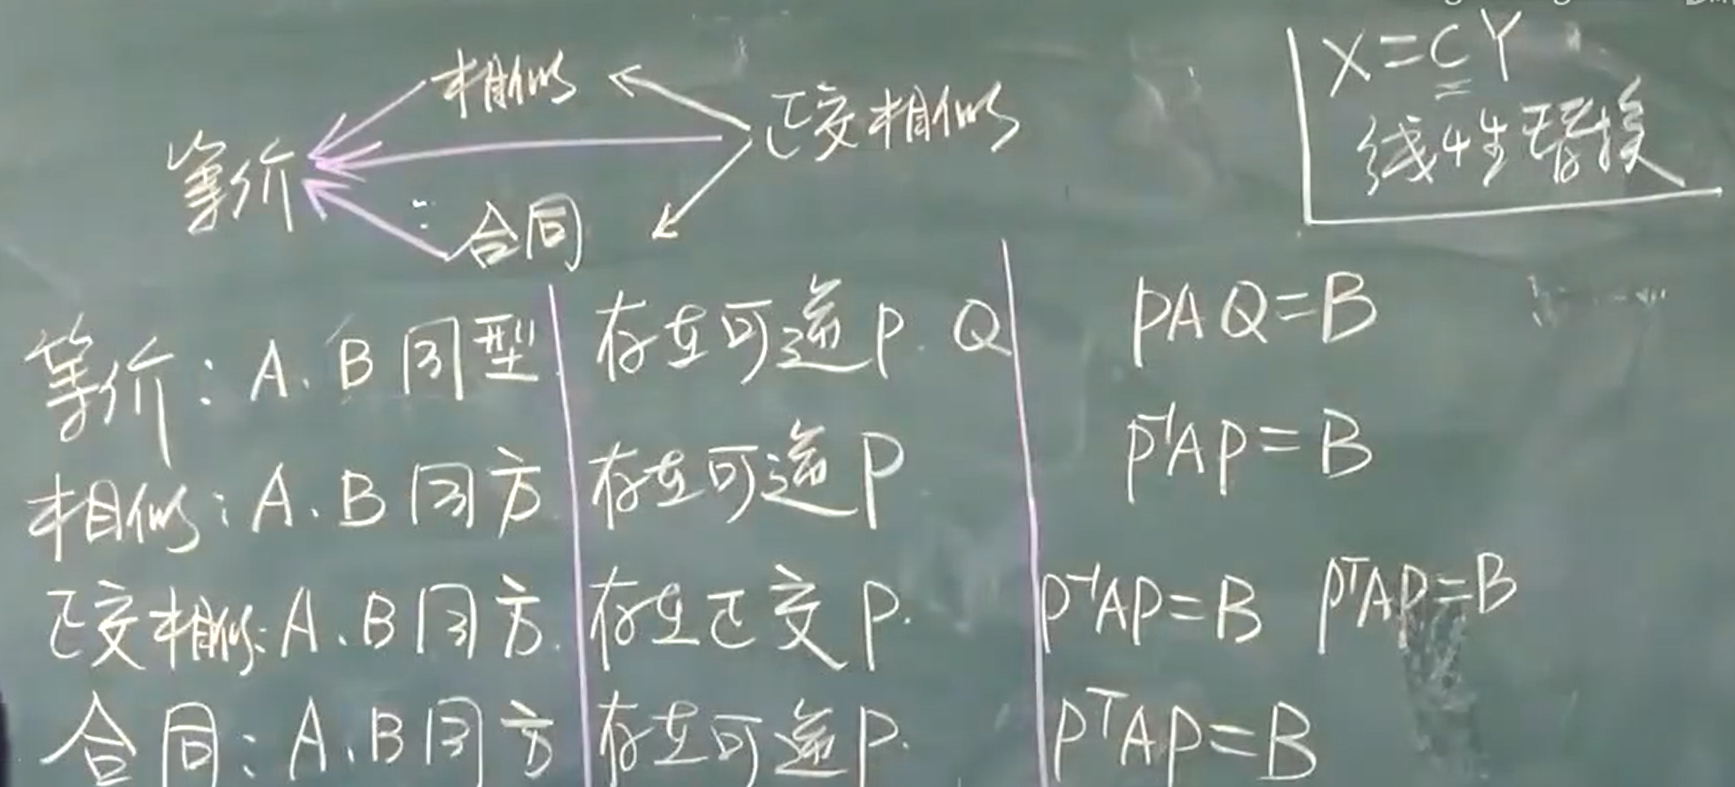 X=CY
线性替换
相似
正交相似
等价
合同
等价:A.B同型 存在可逆P.Q PAQ=B
相似:A.B同方 存在可逆P P⁻¹AP=B
正交相似:A.B同方. 存在正交P. P⁻¹AP=B PᵀAP=B
合同:A.B同方 存在可逆P. PᵀAP=B